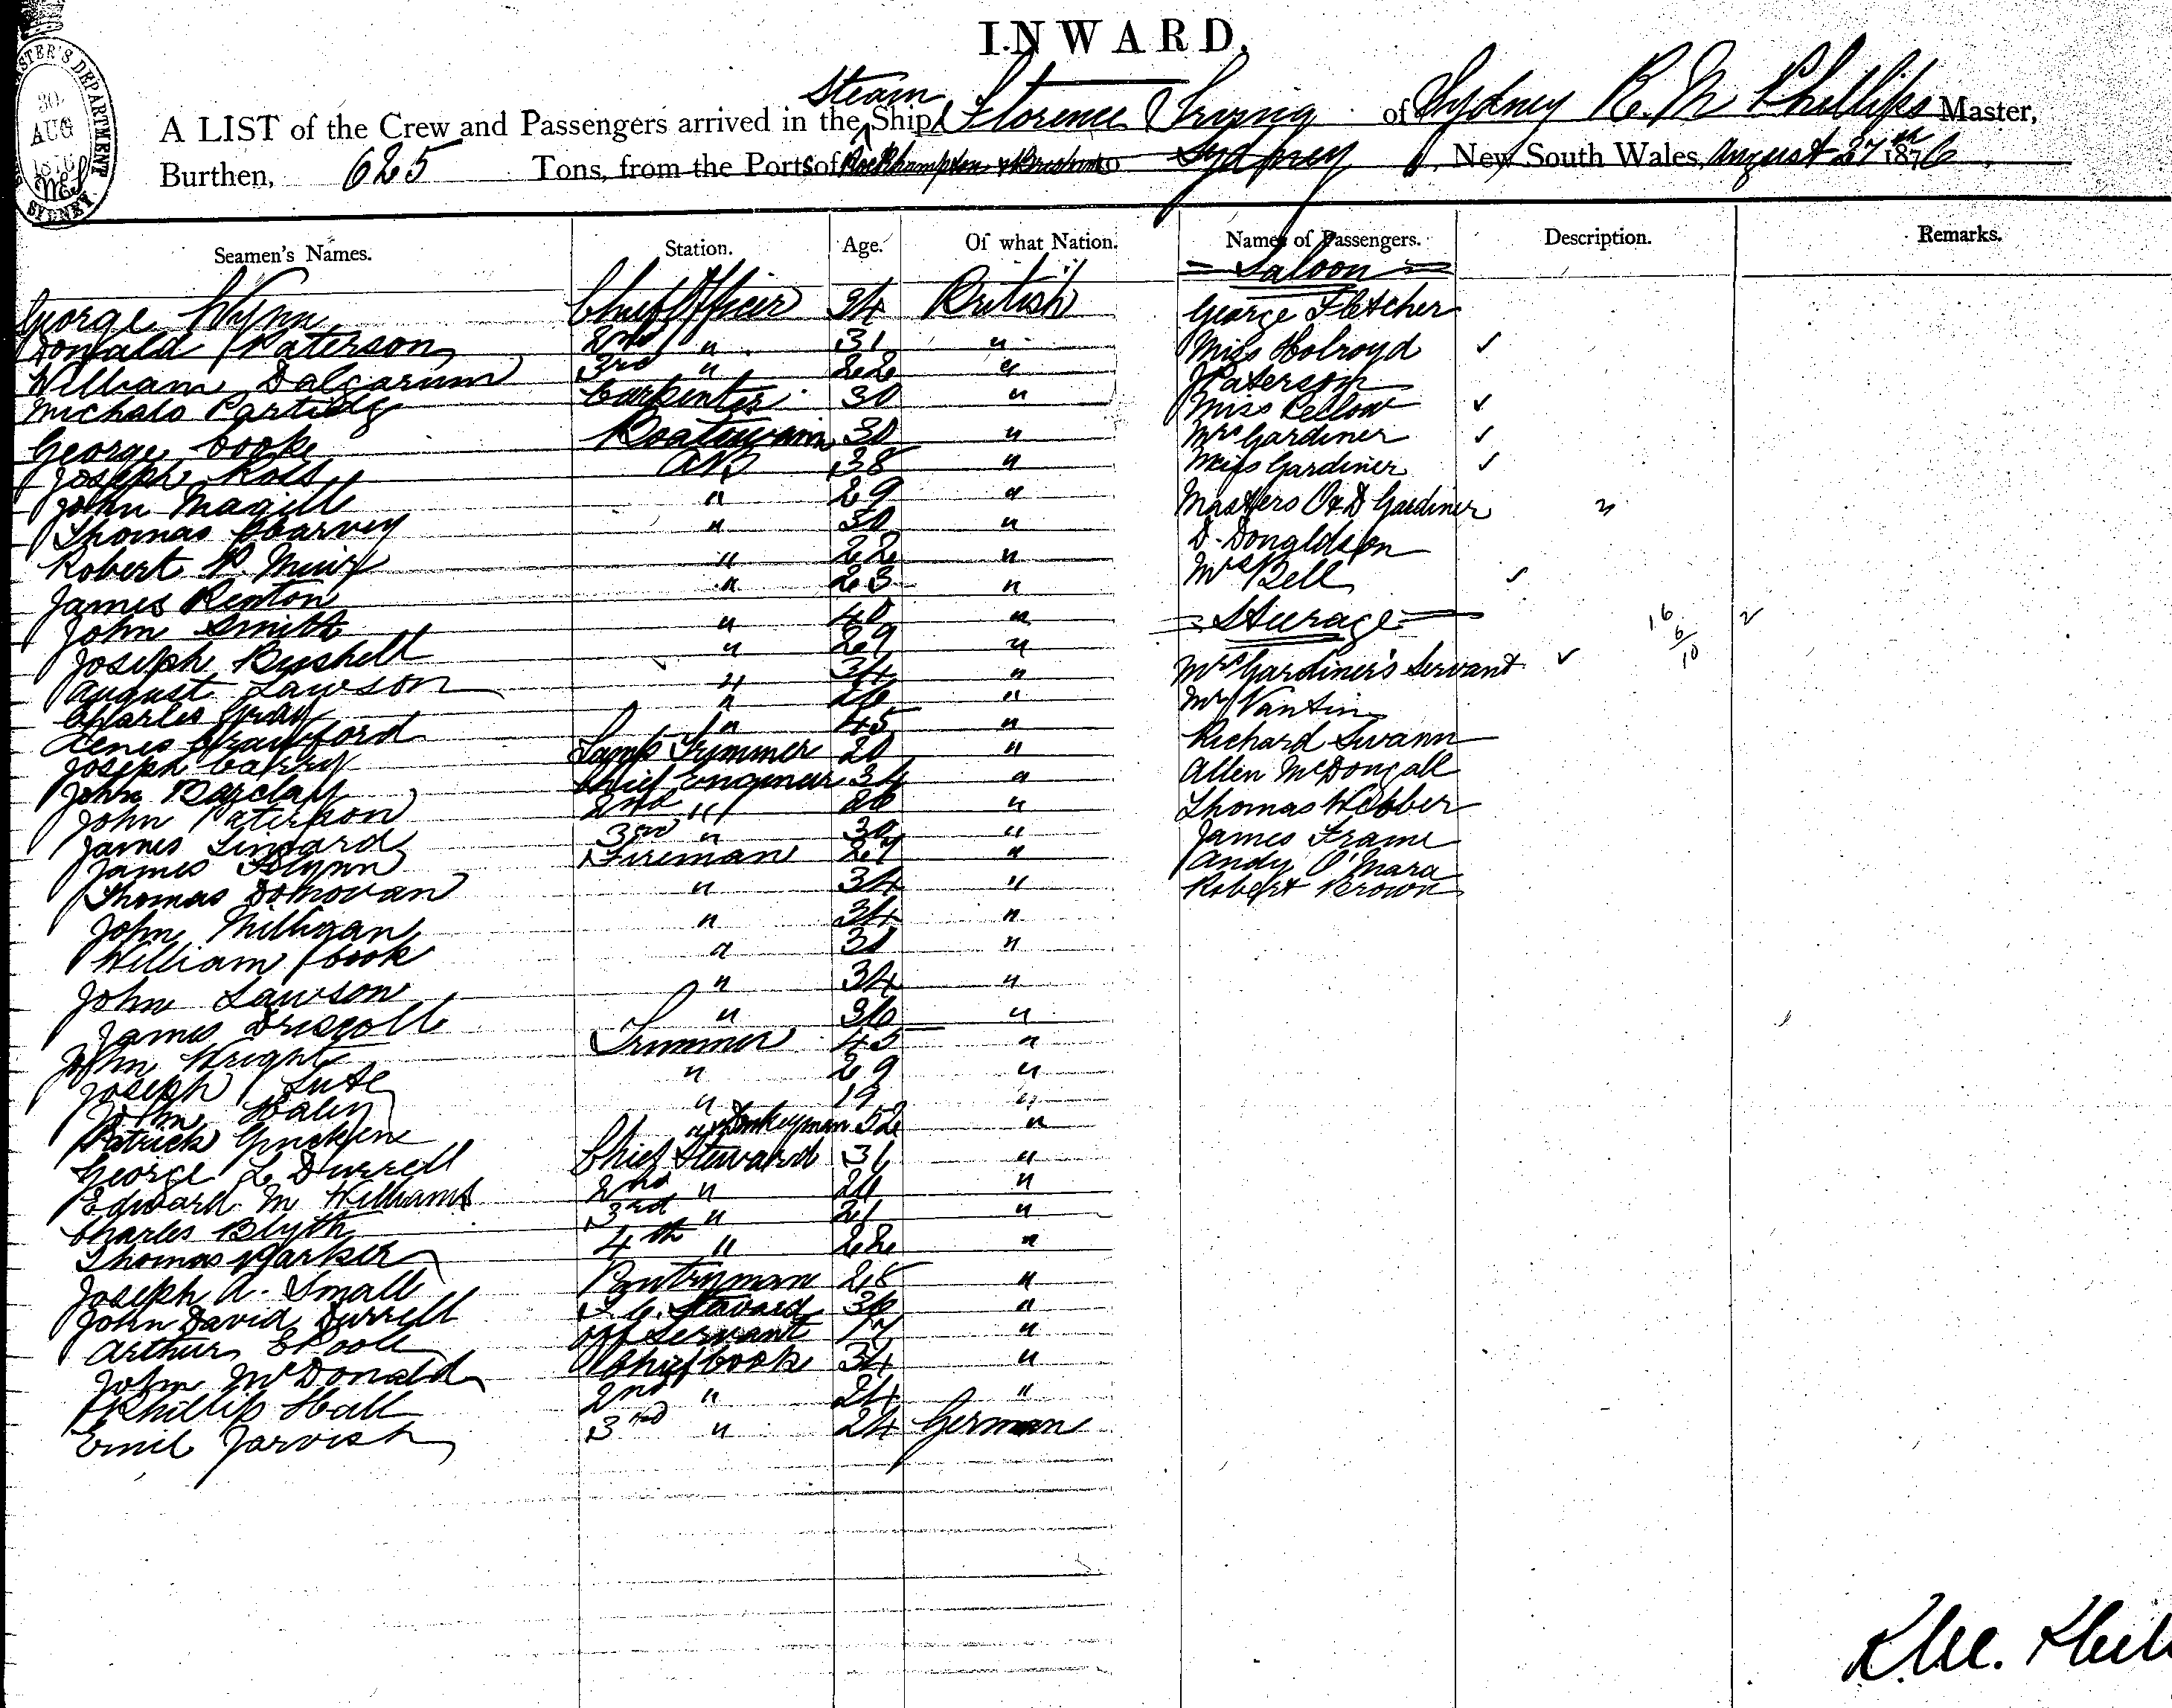 INWARD,
MASTER'S DEPARTMENT
30
AUG
1876
SYDNEY
A LIST of the Crew and Passengers arrived in the Steam Ship Florence Irving of Sydney R. M Phillips Master,
Burthen, 625 Tons, from the Ports of Rockhampton & Brisbane to Sydney, New South Wales, August 27th 1876.
Seamen's Names. Station. Age. Of what Nation. Names of Passengers. Description. Remarks.
Saloon
George Wynn Chief Officer 34 British George Fletcher
Donald Paterson 2nd " 31 " Miss Holroyd ✓
William Dalgarium 3rd " 22 " J Paterson
Michalo Partidg Carpenter 30 " Miss Pellow ✓
George Cooke Boatswain 30 " Mrs Gardiner ✓
Joseph Ross AB 38 " Miss Gardiner ✓
John Magill " 29 " Masters O & D Gardiner
Thomas Charvey " 30 " D. Donaldson
Robert P. Muir " 22 " Mrs Bell ✓
James Renton " 23 "
John Smith " 40 " Steurage
Joseph Bushell " 29 " Mrs Gardiner's Servant ✓
August Lawson " 34 " Mr Vantin
Charles Gray " 26 "
Denis Crawford " 45 " Richard Swann
Joseph Carry Lamp Trimmer 20 " Allen McDongall
John Barclay Chief Engineer 34 "
John Paterson 2nd " " Thomas Webber
James Lingard 3rd " 30 " James Frame
James Flynn Fireman 27 " Andy O'Mara
Thomas Donovan " 34 " Robert Brown
John Milligan " 34 "
William Cook " 31 "
John Lawson " 34 "
James Driscoll " 36 "
John Wright Trimmer 45 "
Joseph Lute " 29 "
John Haley " 19 "
Patrick " & Donkeyman 52 "
George L Durrell Chief Steward 31 "
Edward M Williams 2nd " 24 "
Charles Blyth 3rd " 21 "
Thomas Parker 4th " 22 "
Joseph A. Small Pantryman 28 "
John David Durrell F. C. Steward 36 "
Arthur E Poole Off Servant 17 "
John McDonald Chief Cook 34 "
Phillip Hall 2nd " 24 "
Emil Jarvish 3rd " 24 German
16
6
10